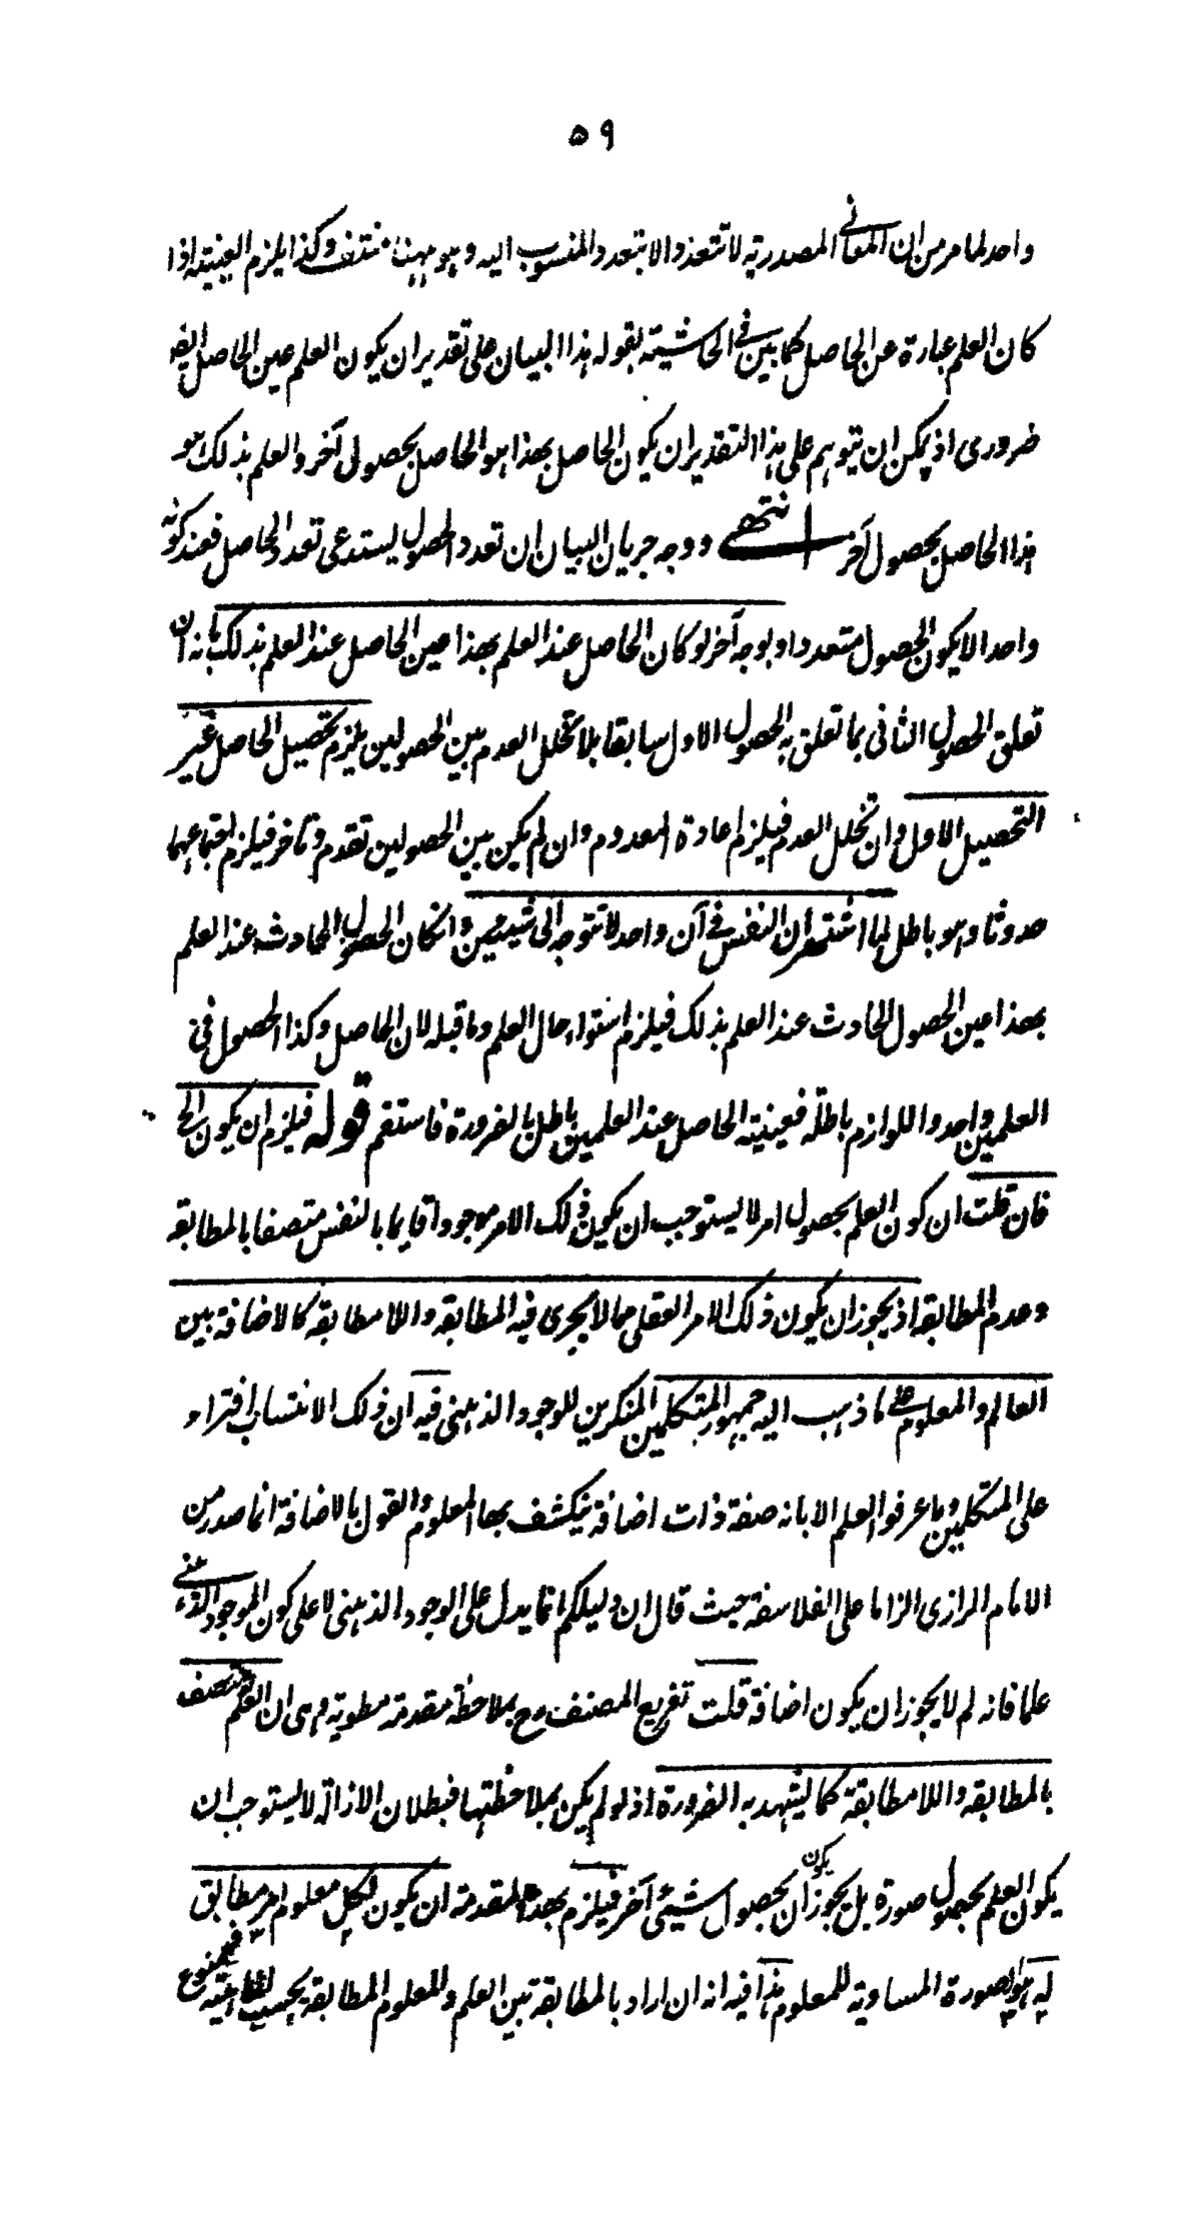 ٥٩
واحد لما مر من ان المعانى المصدرية لا تتعدد الا بتعدد المنسوب اليه وهو ههنا منتف وكذا يلزم العينية اذا
كان العلم عبارة عن الحاصل كما بين فى الحاشية بقوله هذا البيان على تقدير ان يكون العلم عين الحاصل ايضا
ضرورى اذ يمكن ان يتوهم على هذا التقدير ان يكون الحاصل بهذا هو الحاصل بحصول آخر والعلم بذلك هو
هذا الحاصل بحصول آخر انتهى ووجه جريان البيان ان تعدد الحصول يستدعى تعدد الحاصل فعند كونه
واحدا لا يكون الحصول متعددا وبوجه آخر لو كان الحاصل عند العلم بهذا عين الحاصل عند العلم بذلك بانه ان
تعلق الحصول الثانى بما تعلق به الحصول الاول سابقا بلا تخلل العدم بين الحصولين يلزم تحصيل الحاصل غير
التحصيل الاول وان تخلل العدم فيلزم اعادة المعدوم وان لم يكن بين الحصولين تقدم وتاخر فيلزم اجتماعهما
حدوثا وهو باطل لما اشتهر ان النفس فى آن واحد لا تتوجه الى شيئين وان كان الحصول الحادث عند العلم
بهذا عين الحصول الحادث عند العلم بذلك فيلزم استواء حال العلم وما قبله لان الحاصل وكذا الحصول فى
العلمين واحد واللوازم باطلة فعينية الحاصل عند العلمين باطل بالضرورة فاستقم قوله فيلزم ان يكون الخ
فان قلت ان كون العلم بحصول امر لا يستوجب ان يكون ذلك الامر موجودا قايما بالنفس متصفا بالمطابقة
وعدم المطابقة اذ يجوز ان يكون ذلك الامر العقلى مما لا يجرى فيه المطابقة واللا مطابقة كالاضافة بين
العالم والمعلوم على ما ذهب اليه جمهور المتكلمين المنكرين للوجود الذهنى فيه ان ذلك الانتساب افتراء
على المتكلمين وما عرفوا العلم الا بانه صفة ذات اضافة ينكشف بها المعلوم والقول بالاضافة انما صدر من
الامام الرازى الزاما على الفلاسفة حيث قال ان دليلكم انما يدل على الوجود الذهنى لا على كون الموجود الذهنى
علما فانه لم لا يجوز ان يكون اضافة قلت تفريع المصنف رح بملاحظة مقدمة مطوية وهى ان العلم متصف
بالمطابقة واللا مطابقة كما يشهد به الضرورة اذ لو لم يكن بملاحظتها فبطلان الازالة لا يستوجب ان
يكون العلم بحصول صورة بل يجوز ان يكون بحصول شيئى آخر فيلزم بهذه المقدمة ان يكون لكل معلوم امر مطابق
له هو الصورة المساوية للمعلوم هذا فيه انه ان اراد بالمطابقة بين العلم والمعلوم المطابقة بحسب الماهية فممنوع